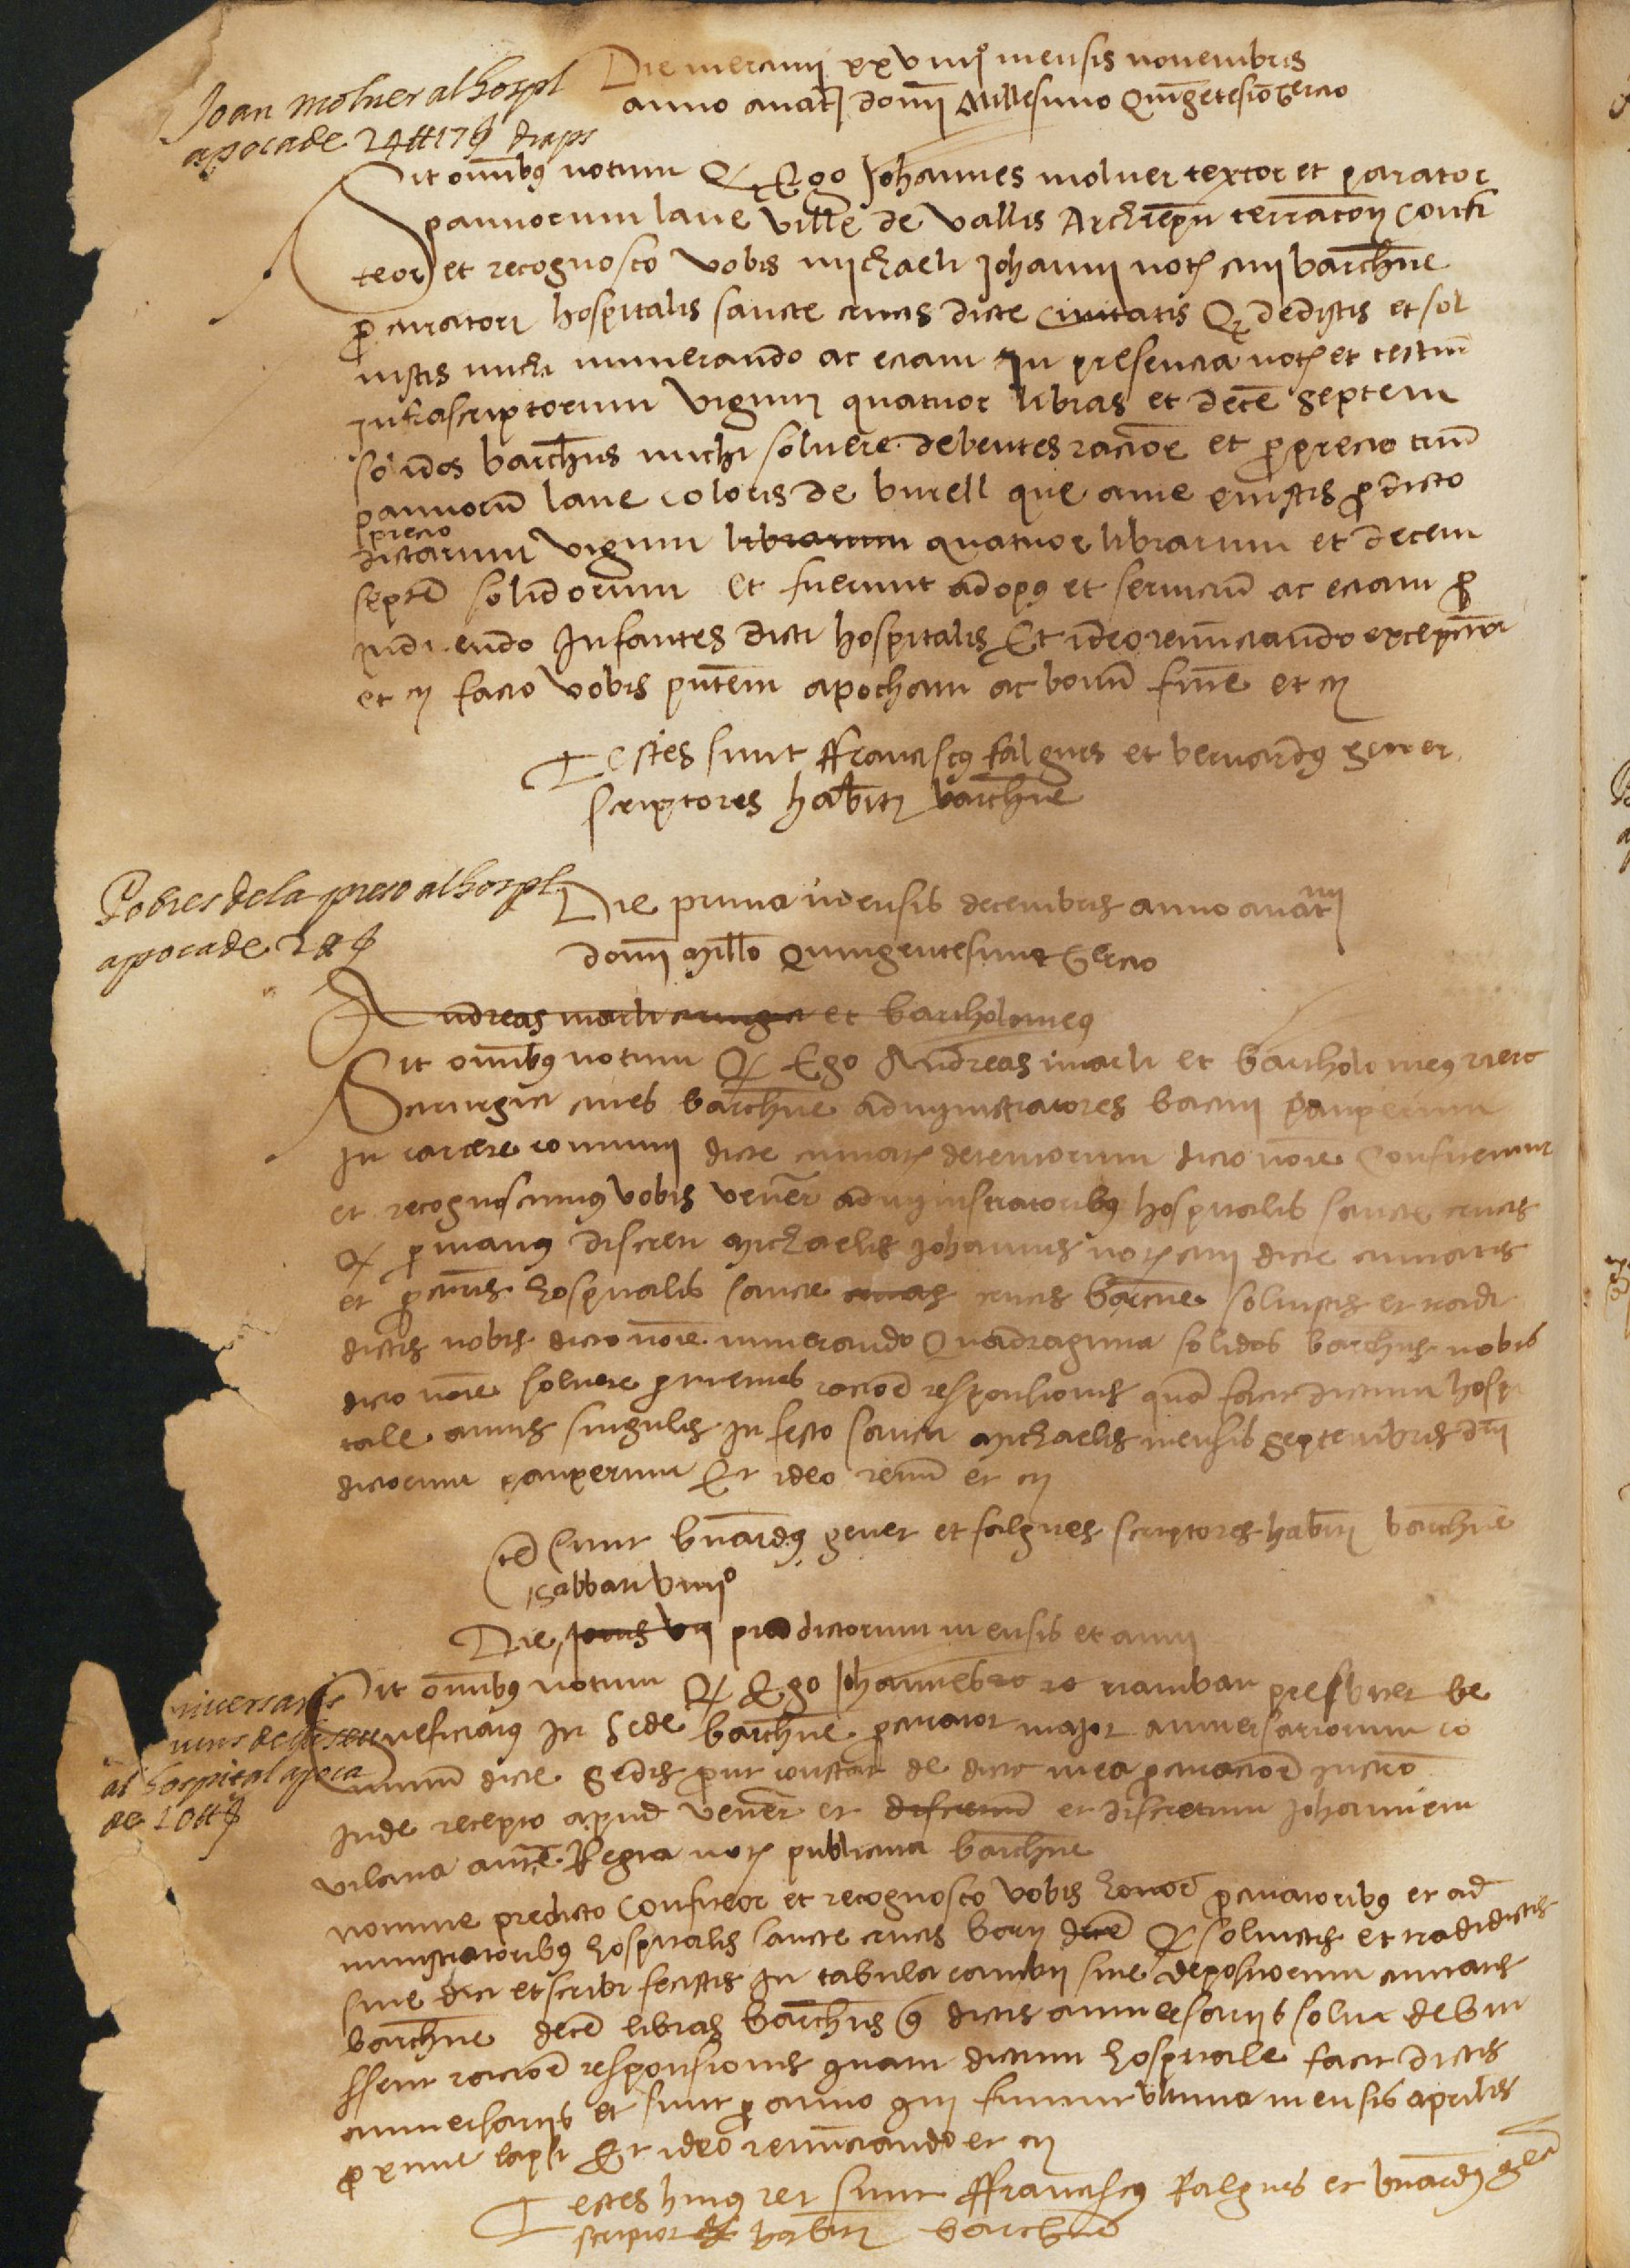 Joan molner al hospl
apoca de 24 ## 17 ß draps
Die mercurii xxviiiiº mensis novembris
anno a nat domi Millesimo Quingetesio tercio
Sit omibus notum Q Ego Johannes molner textor et parator
pannorum lane ville de Vallis Archiepi terracon Confi
teor et recognosco vobis michaeli Johanni not civi barchne
procuratori hospitalis sancte crucis dicte civitatis Q dedistis et sol
vistis michi numerando ac eciam In presencia not et testium
infrascriptorum viginti quatuor libras et dece septem
solidos barchns michi solvere debentes racioe et pro precio trium
pannoru lane coloris de burell que a me emistis pro dicto
precio
dictarum viginti librarum quatuor librarum et decem
septe solidorum et fuerunt ad opus et serviciu ac eciam pro
induendo Infantes dicti hospitalis Et ideo renunciando excepcioi
et c facio vobis pntem apocham ac bonu fine et c
Testes sunt ffranciscus falgueres et bernardus gener
scriptores habit barchne
Pobres de la preso al hospl
apoca de 2 ## ß
Die prima mensis decembris anno a nati
domi Millo Quingentesimo tercio
Andreas marti cirurgici et bartholomeus
Sit omibus notum Q Ego Andreas marti et bartholomeus riero
cirurgici cives barchne administratores bacini pauperum
In carcere comuni dicte civitat detentorum dicto noie Confitemur
et recognoscimus vobis vener administratoribus hospitalis sancte crucis
Q pro manus discreti Michaelis Johannis not civi dicte civitatis
et procuris hospitalis sancte crucis crucis barcne solvistis et tradi
distis nobis dicto noie numerando Quadraginta solidos barchns nobis
dicto noie solvere pertinentes racioe responsionis qua facit dictum hospi
tale annis singulis In festo sancti Michaelis mensis septembris
dictorum pauperum Et ideo renu et c
Tes sunt bnardus gener et falgueres scriptores habit barchne
sabbati viiiiº
Die Jovis vii predictorum mensis et anni
niversaris
al hospital apoca
de 10 ## ß
Sit omibus notum Q Ego Johannes presbiter be
neficiatus In Sede barchne procurator major anniversariorum co
muniu dicte Sedis prout constat de dicta mea procuracioe Instro
Inde recepto apud vener et discretu et discretum Johannem
vilana aucte Regia not publicum barchne
nomine predicto Confiteor et recognosco vobis honor procuratoribus et ad
ministratoribus hospitalis sancte crucis dicte Q solvistis et tradidistis
sive dici et scribi fecistis In tabula cambii sive depositorum civitatis
barchne dece libras barchns q dictis anniversariis solvi debui
ssent racioe responsionis quam dictum hospitale facit dictis
anniversariis et sunt pro anno qui finivit ultima mensis aprilis
proxime lapsi Et ideo renunciando et c
Testes hujus rei sunt ffranciscus Falgueres et bnardus gen
scriptor habit barchne